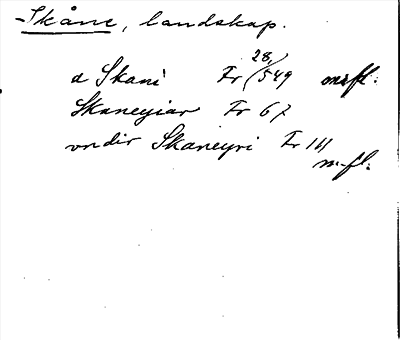 Skåne, landskap.
a Skani Fr 28/549 m.fl.
Skaneyiar Fr 67
vndir Skaneyri Fr 141
m.fl.